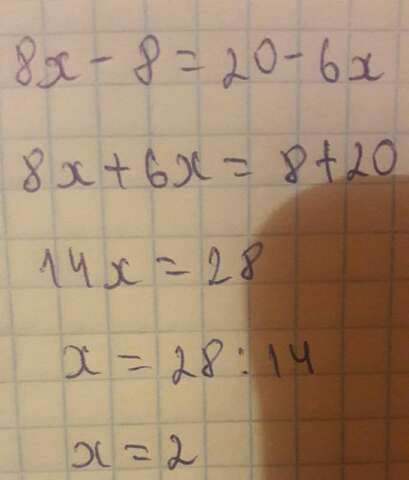 8x - 8 = 20 - 6x
8x + 6x = 8 + 20
14x = 28
x = 28 : 14
x = 2